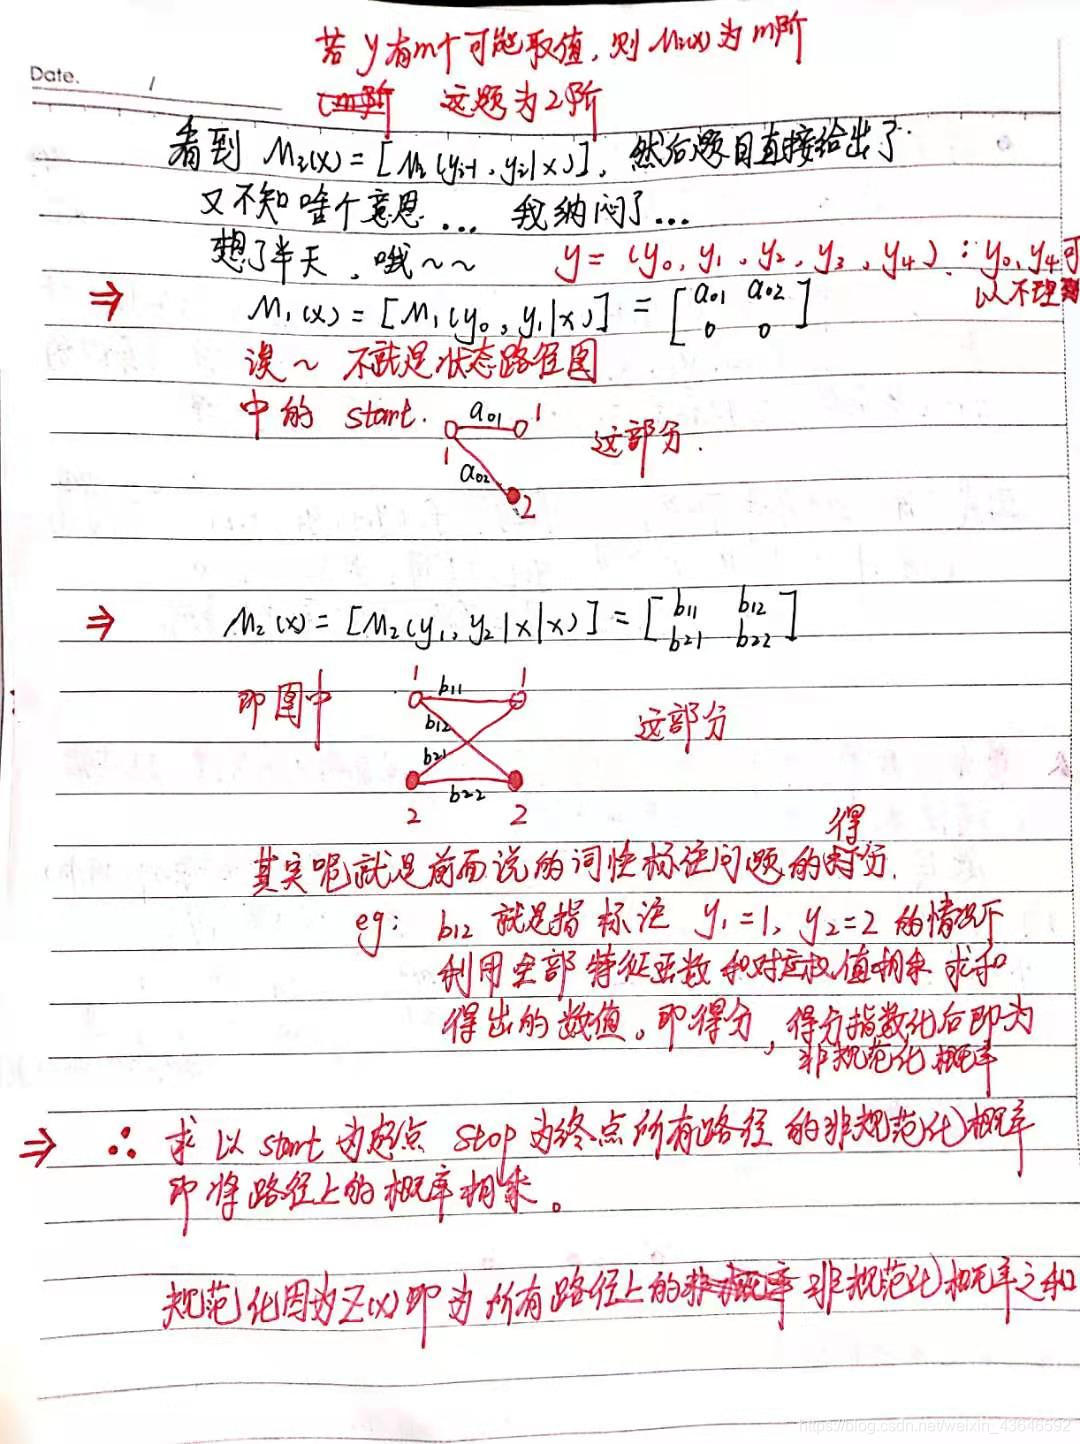 若 y 有m个可能取值,则 Mi(x) 为 m阶
Date. 1
这题为2阶
看到 Mi(x) = [Mi(yi-1, yi|x)], 然后题目直接给出了
又不知啥个意思... 我纳闷了...
想了半天, 哦~~ y = (y0, y1, y2, y3, y4) : y0, y4可
以不理
⇒ M1(x) = [M1(y0, y1|x)] = [a01 a02
0 0]
诶~ 不就是状态路径图
中的 start. a01 1 这部分.
1
a02
2
⇒ M2(x) = [M2(y1, y2|x|x)] = [b11 b12
b21 b22]
1 b11 1
即图中 b12 这部分
b21
b22
2 2
得
其实呢就是前面说的词性标注问题的得分.
eg: b12 就是指 标注 y1=1, y2=2 的情况下
利用全部特征函数和对应权值相乘 求和
得出的数值。即得分, 得分指数化后即为
非规范化概率
⇒ ∴ 求以 start 为起点 stop 为终点所有路径 的非规范化概率
即将路径上的概率相乘。
规范化因为Z(x)即为所有路径上的非概率 非规范化概率之和
https://blog.csdn.net/weixin_43646592